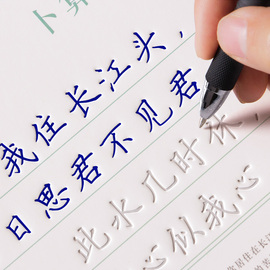 卜算
我住长江头，
日思君不见君
此水几时休，
心似我心